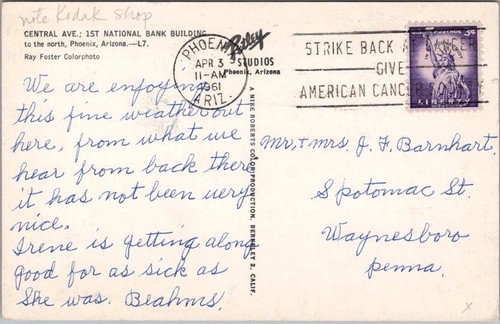 note Kodak shop
CENTRAL AVE.; 1ST NATIONAL BANK BUILDING
to the north, Phoenix, Arizona.—L7.
Ray Foster Colorphoto
Petley
STUDIOS
Phoenix, Arizona
PHOENIX
APR 3
11-AM
1961
ARIZ.
STRIKE BACK AT CANCER
GIVE
AMERICAN CANCER SOCIETY
U.S. POSTAGE 3¢
LIBERTY
We are enjoying
this fine weather out
here, from what we
hear from back there
it has not been very
nice.
Irene is getting along
good for as sick as
She was. Beahms.
A MIKE ROBERTS COLOR PRODUCTION, BERKELEY 2, CALIF.
Mr. & mrs. J. F. Barnhart.
S potomac St.
Waynesboro
penna.
x